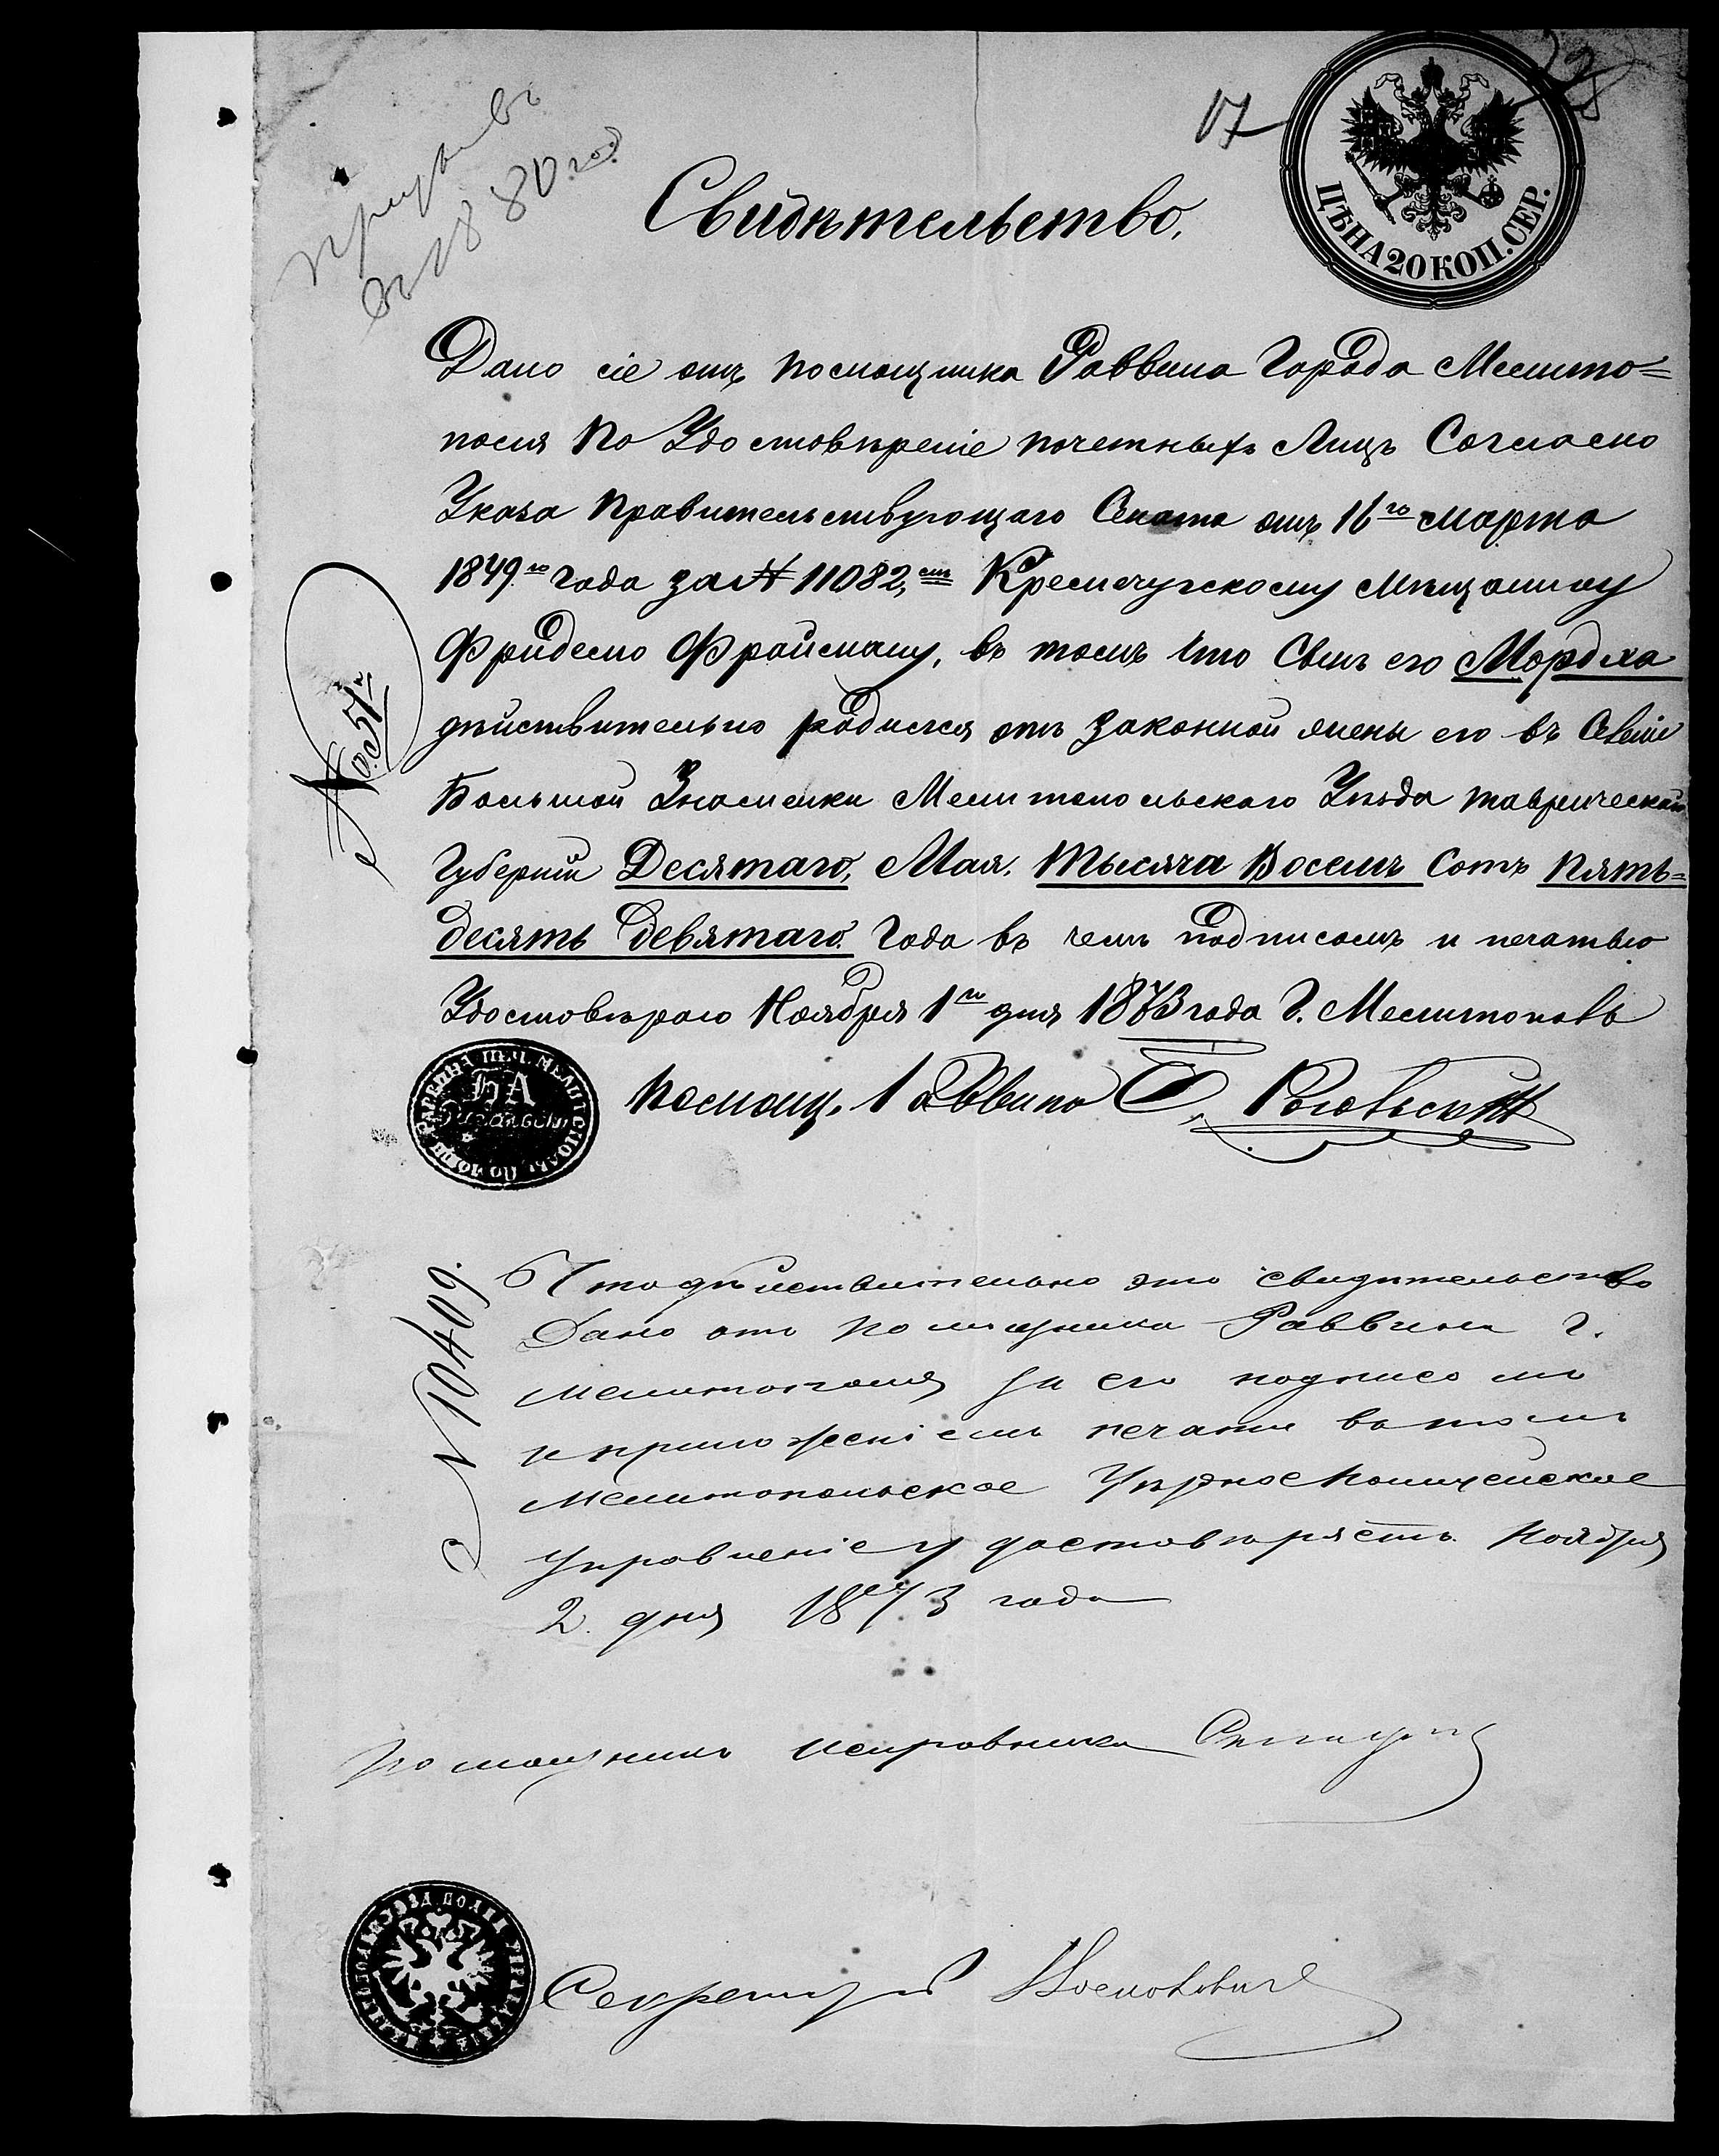 17
ЦѢНА 20 КОП. СЕР.
въ 1880 год
Свидѣтельство.
Дано сіе отъ помощника Раввина Города Мелито=
поля По Удостовѣреніе почетныхъ Лицъ Согласно
Указа Правительствующаго Сената отъ 16го марта
1849.го Года за № 11082, Кременчугскому мѣщанину
Фриделю Фрайману, въ томъ что Сынъ его Мордха
дѣйствительно родился отъ законной жены его въ Селѣ
Большой Знаменки Мелитопольскаго Уѣзда Таврической
Губерніи Десятаго, Мая. Тысяча Восемь Сотъ Пять=
десять девятаго. Года въ чемъ подписомъ и печатью
Удостовѣраю Ноября 1го дня 1873 года Г. Мелитополь
Помощ. Раввина Б. Роговскій
№ 51
№ 10409.
Что дѣйствительно это свидѣтельство
Дано отъ Помощника Раввина г.
Мелитополя за его подписомъ
и приложеніемъ печати въ томъ
Мелитопольское Уѣздное Полицейское
Управленіе удостовѣряетъ. Ноября
2. дня 1873 года
Помощникъ исправника
Секретарь